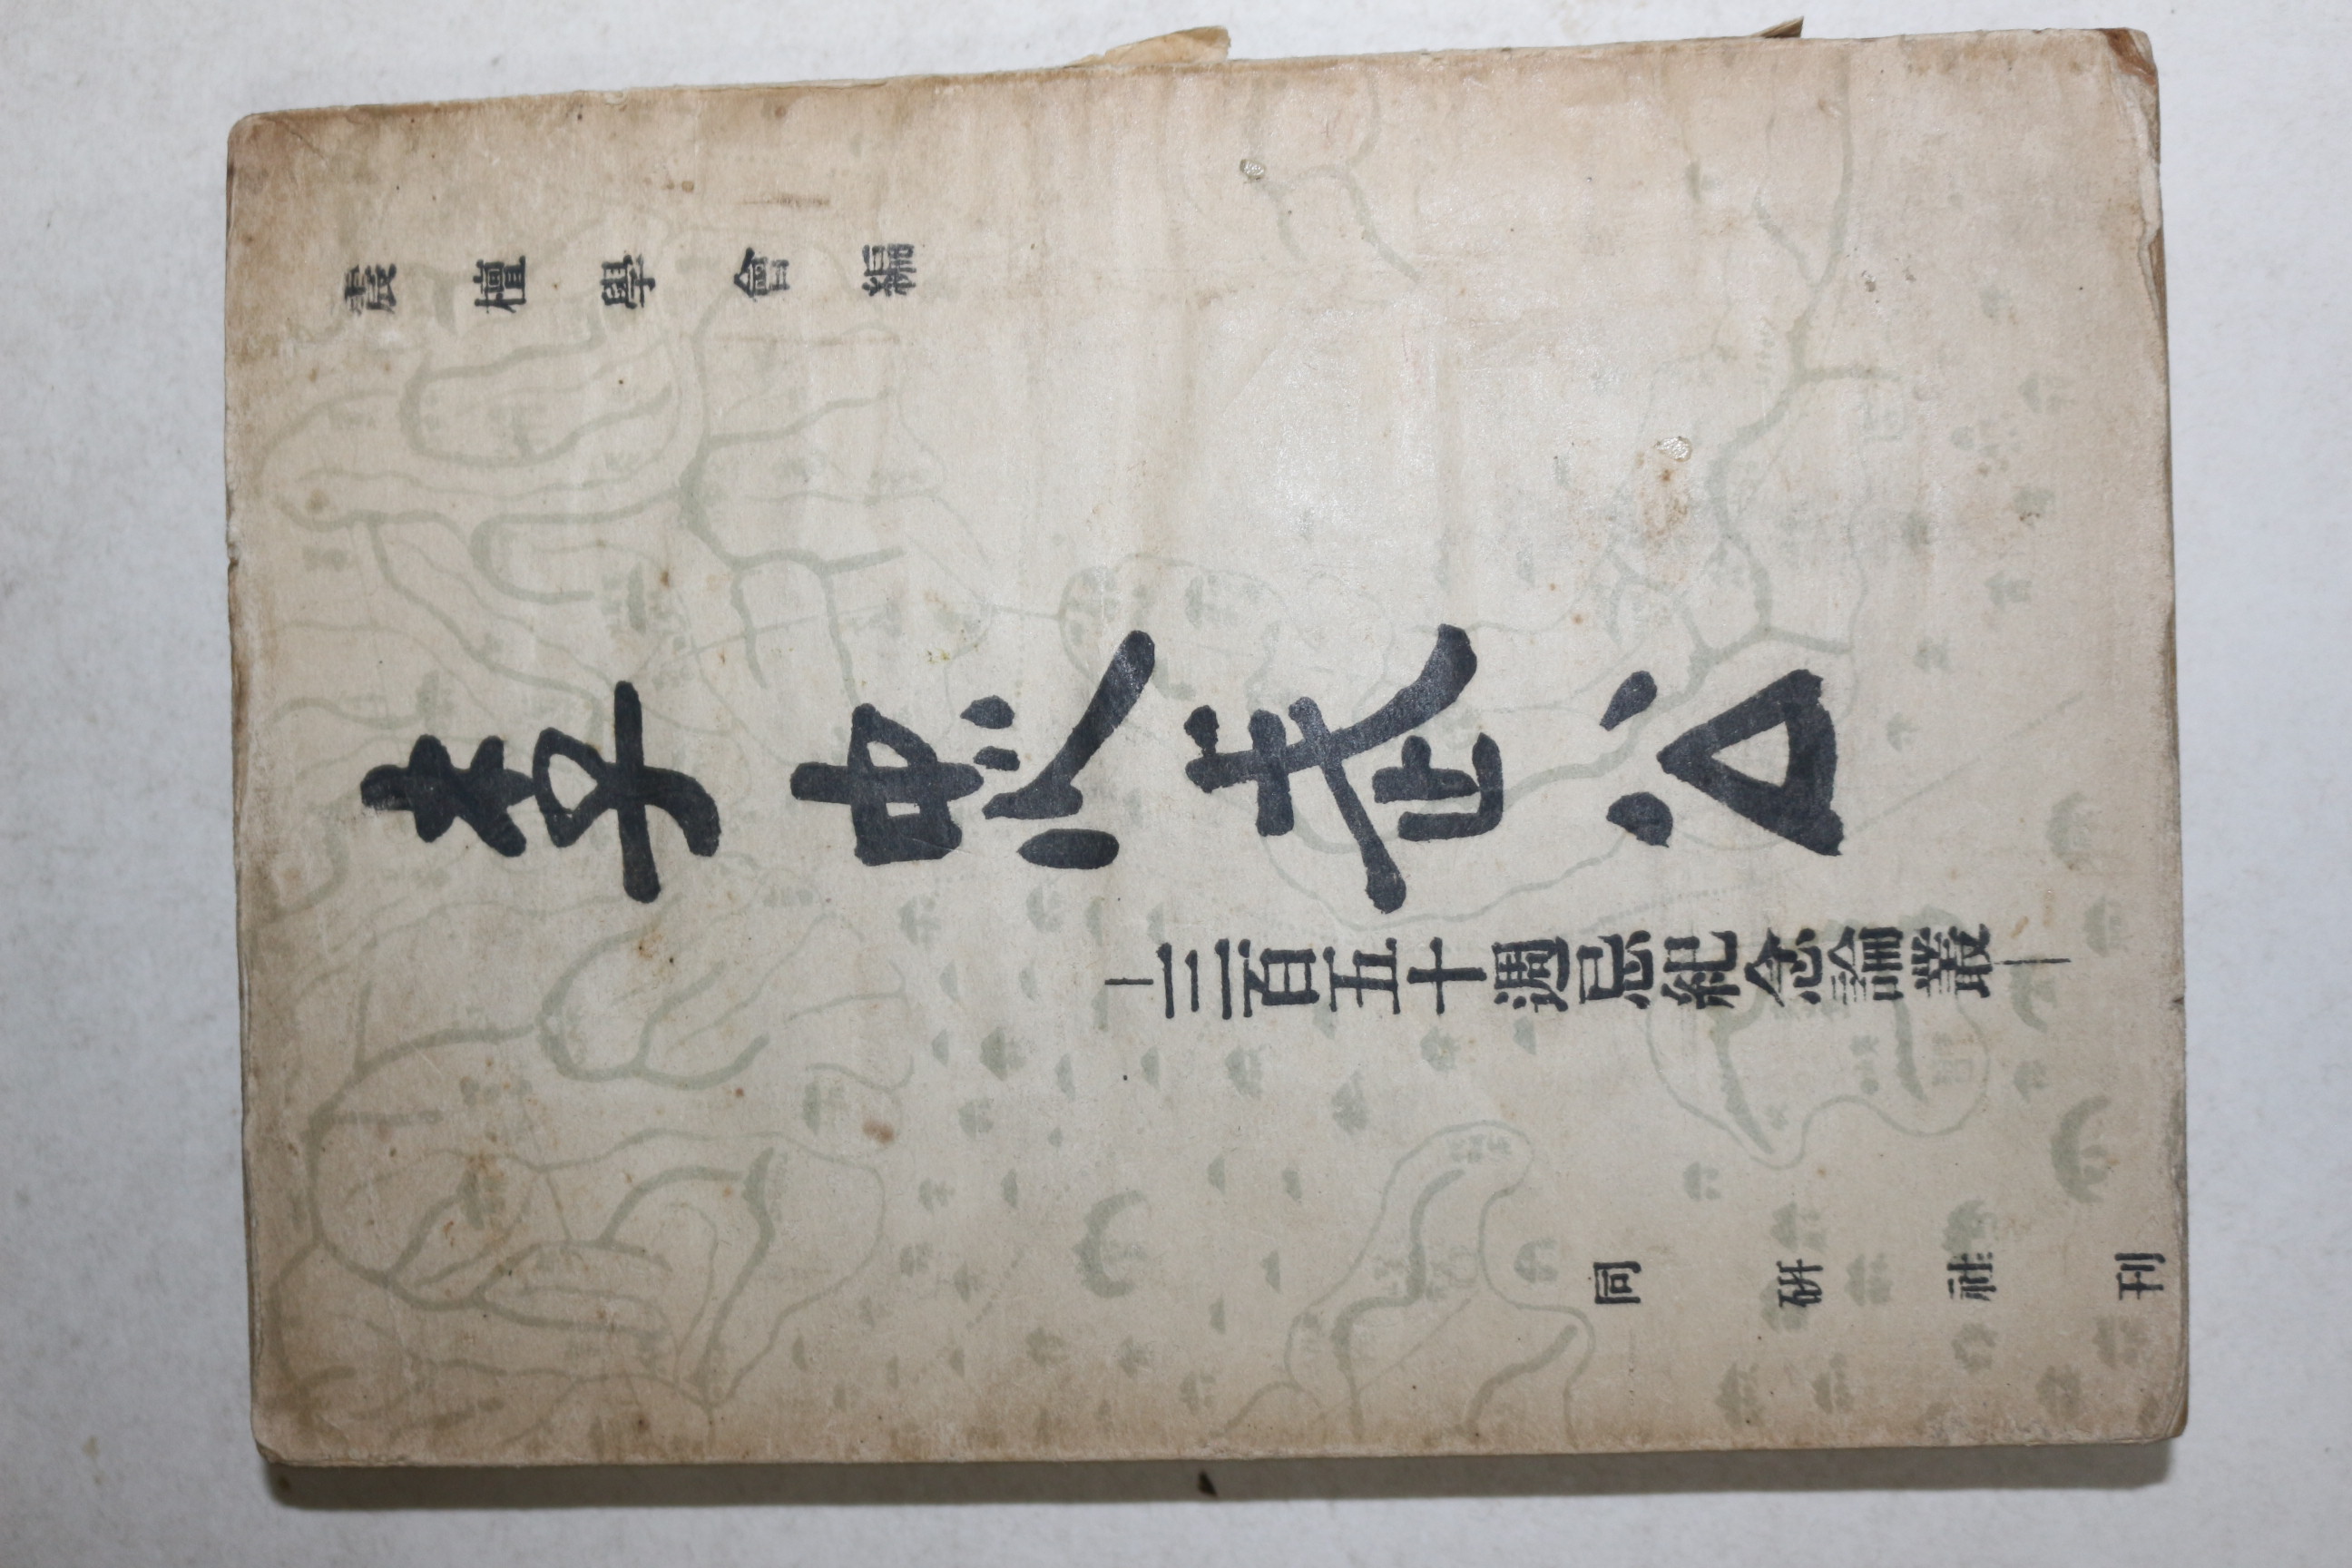 震檀學會編
李忠武公
—三百五十週忌紀念論叢—
同硏社刊